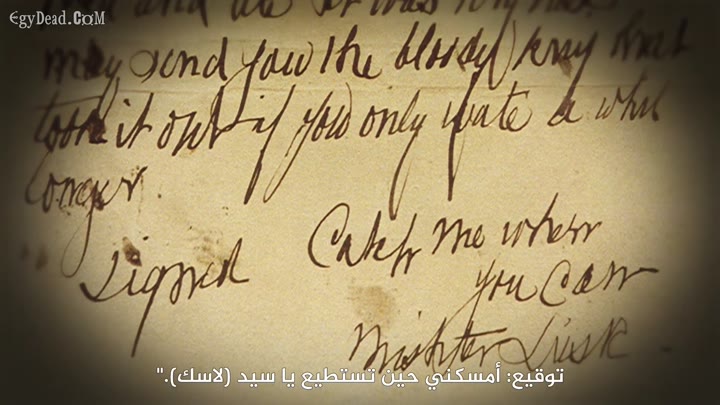 EgyDead.CoM
may send you the bloody knif that
took it out if you only wate a whil
longer
signed Catch me when
you Can
Mishter Lusk
توقيع: أمسكني حين تستطيع يا سيد (لاسك)."